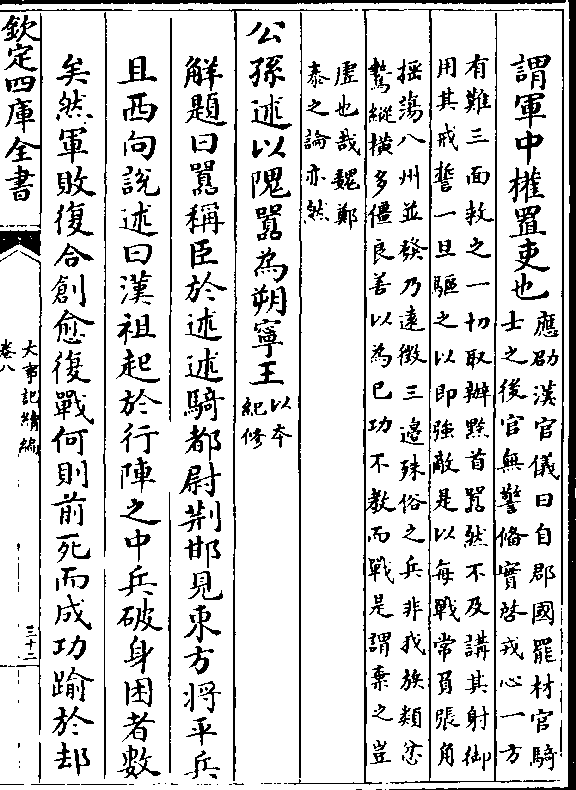 謂軍中權置吏也應劭漢官儀曰自郡國罷材官騎
士之後官無警備實啓戎心一方
有難三面救之一切取辦黔首嚣然不及講其射御
用其戒誓一旦驅之以即強敵是以每戰常負張角
揺蕩八州並發乃遠徴三邉殊俗之兵非我族類忿
鷙縱横多僵良善以為已功不教而戰是謂棄之豈
虛也哉魏鄭
泰之論亦然
公孫述以隗囂為朔寧王以本
紀修
解題曰囂稱臣於述述騎都尉荆邯見東方將平兵
且西向說述曰漢祖起於行陣之中兵破身困者數
矣然軍敗復合創愈復戰何則前死而成功踰於却
欽定四庫全書
大事記續編
卷八
三十二